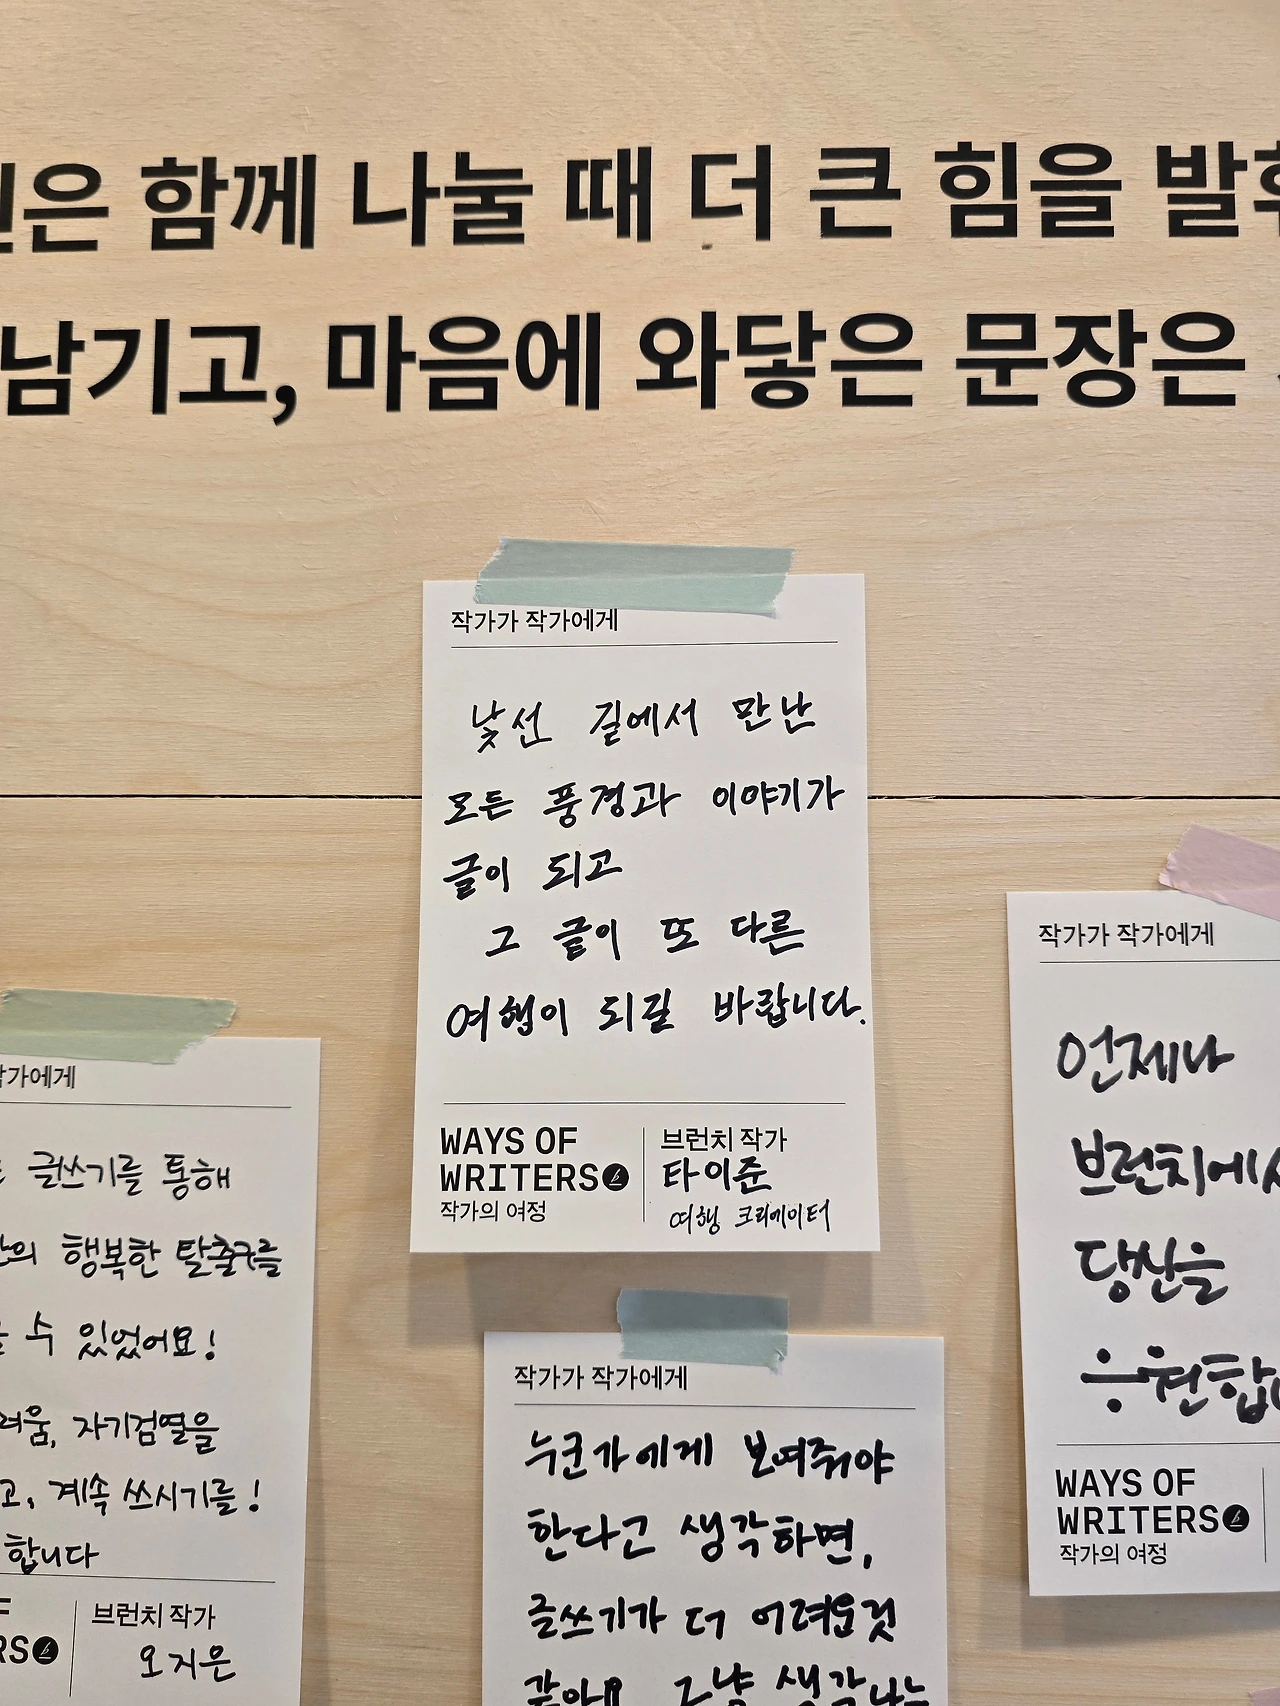 은 함께 나눌 때 더 큰 힘을
남기고, 마음에 와닿은 문장은
작가가 작가에게
낯선 길에서 만난
모든 풍경과 이야기가
글이 되고
그 글이 또 다른
여행이 되길 바랍니다.
WAYS OF
WRITERS
작가의 여정
브런치 작가
타이준
여행 크리에이터
작가에게
글쓰기를 통해
행복한 탈출구를
수 있었어요!
자기검열을
계속 쓰시기를!
합니다
브런치 작가
오지은
작가가 작가에게
누군가에게 보여줘야
한다고 생각하면,
글쓰기가 더 어려운것
같아요 그냥 생각나는
작가가 작가에게
언제나
브런치에서
당신을
응원합
WAYS OF
WRITERS
작가의 여정